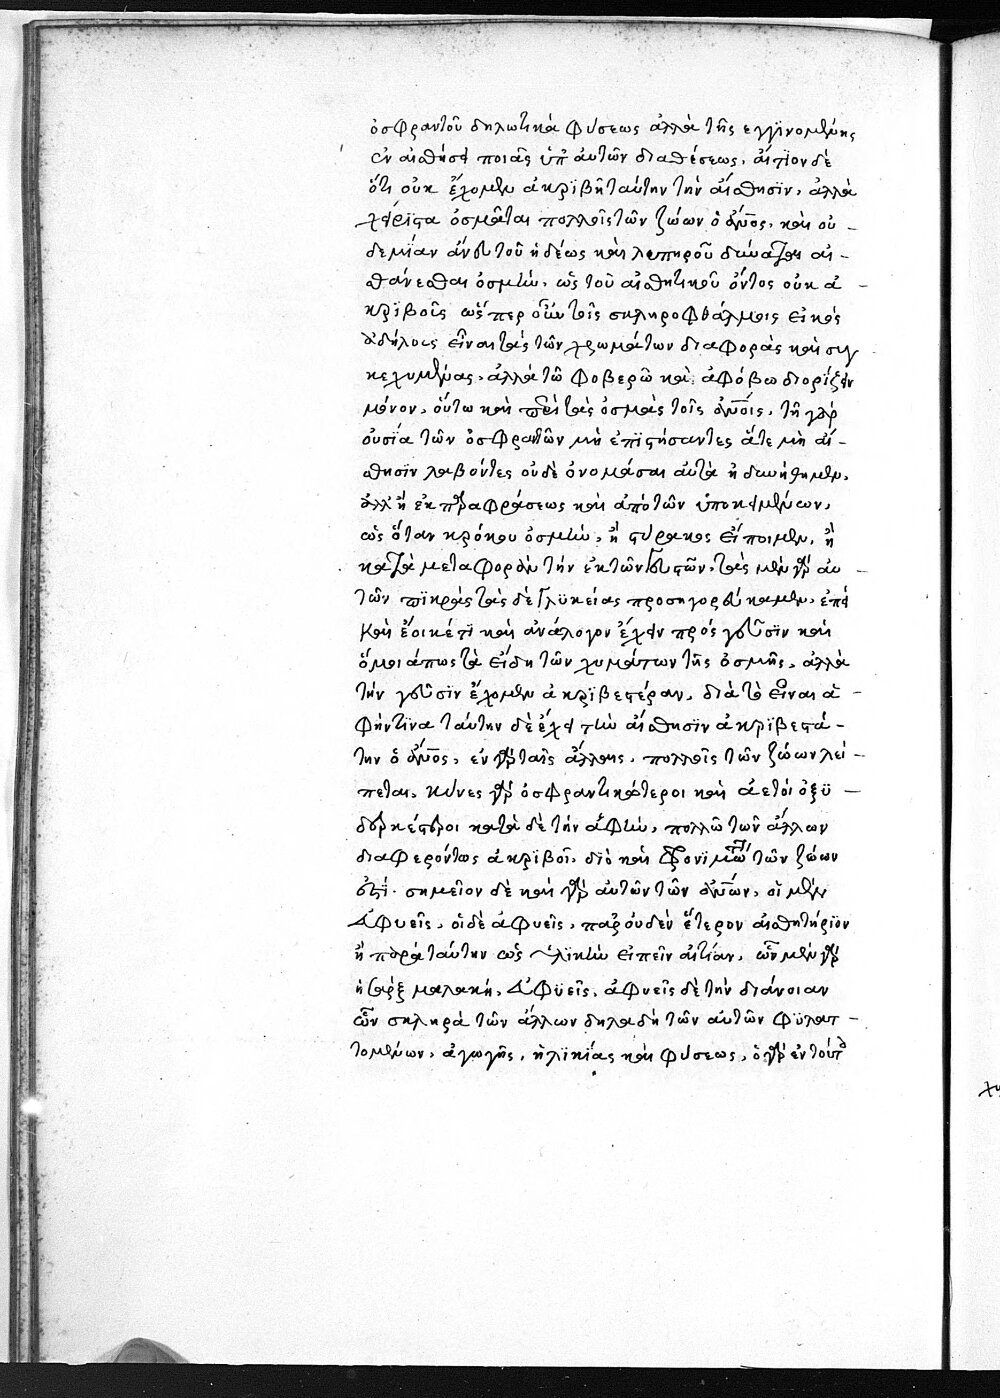 ὀσφραντοῦ δηλωτικὰ φύσεως ἀλλὰ τῆς ἐγγινομένης
ἐν αἰσθήσει ποιᾶς ὑπ' αὐτῶν διαθέσεως. αἴτιον δὲ
ὅτι οὐκ ἔχομεν ἀκριβῆ ταύτην τὴν αἴσθησιν. ἀλλὰ
χείριστα ὀσμᾶται πολλοῖς τῶν ζώων ὁ ἄνος. καὶ οὐ
δεμίαν ἄνευ τοῦ ἡδέως καὶ λυπηροῦ δύναται αἰ
σθάνεσθαι ὀσμήν. ὡς τοῦ αἰσθητικοῦ ὄντος οὐκ ἀ
κριβοῖς ὥσπερ οὖν τοῖς σκληροφθάλμοις εἰκὸς
ἀδήλους εἶναι τὰς τῶν χρωμάτων διαφορὰς καὶ συγ
κεχυμένας. ἀλλὰ τῶ φοβερῶ καὶ ἀφόβω διορίζειν
μόνον. οὕτω καὶ περὶ τὰς ὀσμὰς τοῖς ἀνοις. τῆ γὰρ
οὐσία τῶν ὀσφραντῶν μὴ ἐπιστήσαντες ἅτε μὴ αἴ
σθησιν λαβόντες οὐδὲ ὀνομάσαι αὐτὰ ἠδυνήθημεν.
ἀλλ' ἢ ἐκ παραφράσεως καὶ ἀπὸ τῶν ὑποκειμένων.
ὡς ὅταν κρόκου ὀσμήν. ἢ στύρακος εἴποιμεν. ἢ
κατὰ μεταφορὰν τὴν ἐκ τῶν γευστῶν. τὰς μὲν γὰρ αὐ
τῶν πικρὰς τὰς δὲ γλυκείας προσηγορεύκαμεν. ἐπεὶ
καὶ ἔοικέ τι καὶ ἀνάλογον ἔχειν πρὸς γεῦσιν καὶ
ὁμοιάπως τὰ εἴδη τῶν χυμάτων τῆς ὀσμῆς. ἀλλὰ
τὴν γεῦσιν ἔχομεν ἀκριβεστέραν. διὰ τὸ εἶναι ἁ
φήν τινα ταύτην δὲ ἔχει τὴν αἴσθησιν ἀκριβεστά
την ὁ ἄνος. ἐν γὰρ ταῖς ἄλλαις. πολλοῖς τῶν ζώων λεί
πεται. κύνες γὰρ ὀσφραντικώτεροι καὶ ἀετοὶ ὀξυ
δορκέστεροι κατὰ δὲ τὴν ἁφὴν. πολλῶ τῶν ἄλλων
διαφερόντως ἀκριβοῖ. διὸ καὶ φρονιμώτατον τῶν ζώων
ἐστί. σημεῖον δὲ καὶ γὰρ αὐτῶν τῶν ἀνων. οἱ μὲν
εὐφυεῖς. οἱ δὲ ἀφυεῖς. παρ' οὐδὲν ἕτερον αἰσθητήριον
ἢ παρὰ ταύτην ὡς ὑλικὴν εἰπεῖν αἰτίαν. ὧν μὲν γὰρ
ἡ σὰρξ μαλακή. εὐφυεῖς. ἀφυεῖς δὲ τὴν διάνοιαν
ὧν σκληρὰ τῶν ἄλλων δηλαδὴ τῶν αὐτῶν φυλατ
τομένων. ἀγωγῆς. ἡλικίας καὶ φύσεως. ὁ γὰρ ἐν τούτ